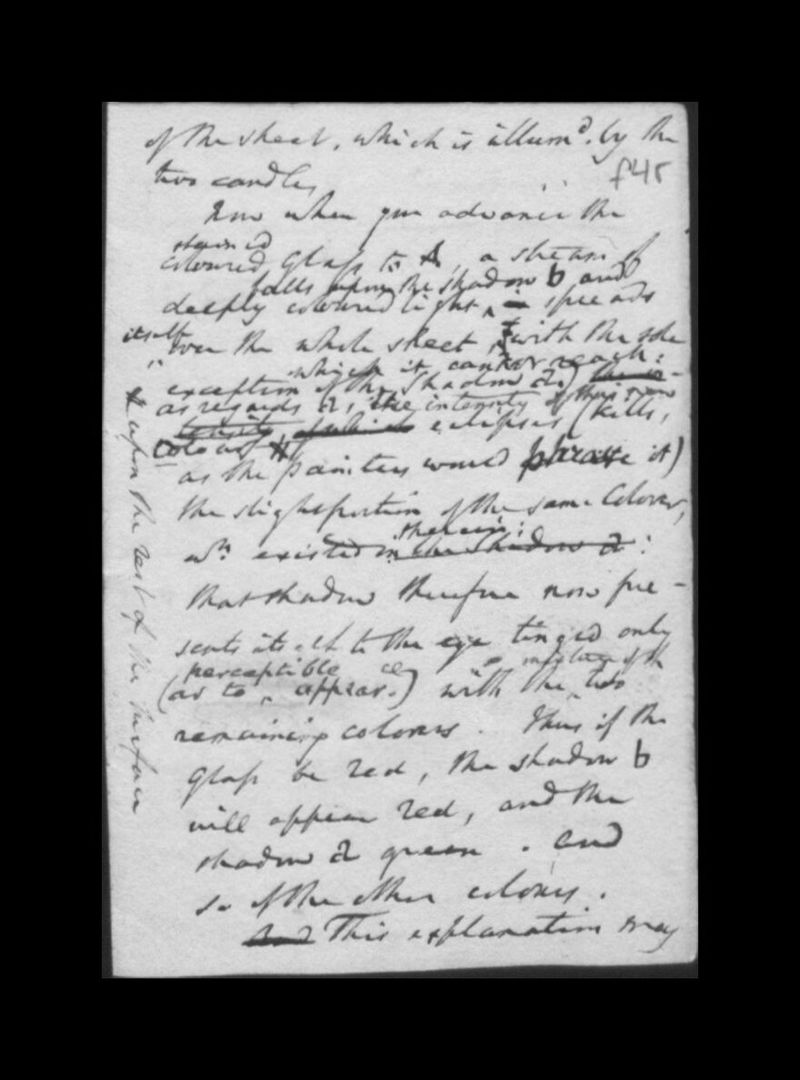 of the sheet, which is illumd. by the
f45
two candles
Now when you advance the
stained
coloured Glass to A, a stream of
falls upon the shadow b and
deeply coloured light, spreads
itself
over the whole sheet, with the sole
which it cannot reach:
exception of the shadow a,
as regards a, the intensity of this now
eclipses (kills,
colour
as the painters would phrase it)
the slight portion of the same Colour,
therein:
wh. existed in the shadow a:
that shadow therefore now pre-
sents itself to the eye tinged only
perceptible ce mixture of the
(as to appear.) with the two
remaining colours. Thus if the
Glass be red, the shadow b
will appear red, and the
shadow a green. and
so of the other colours.
And This explanation may
upon the rest of the surface